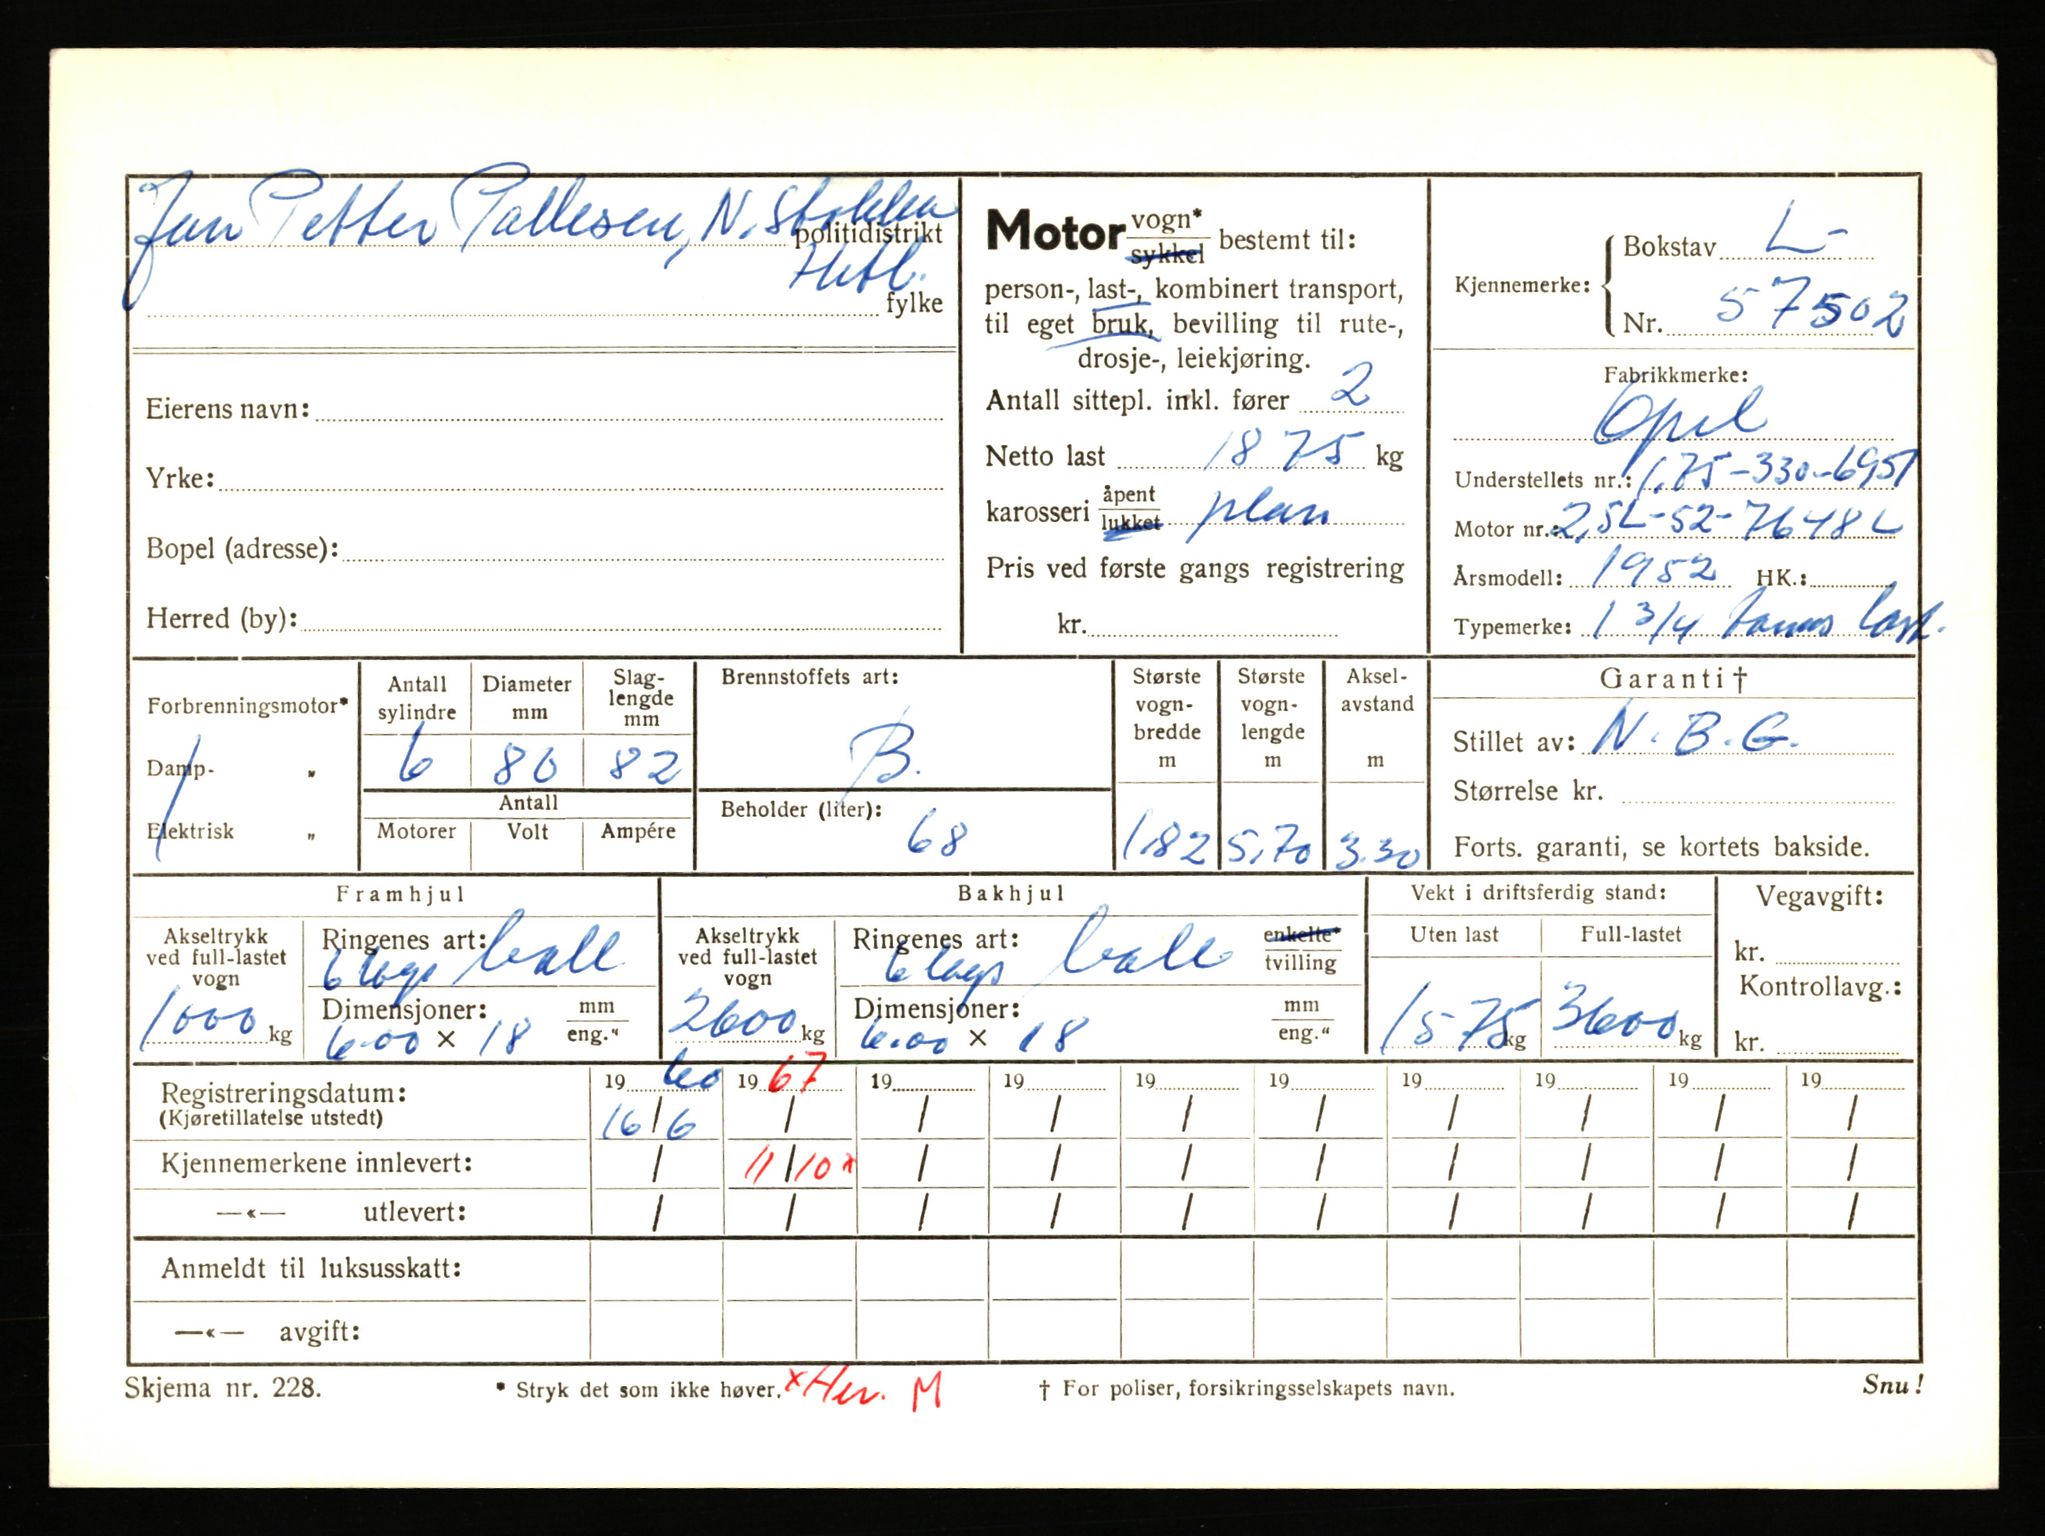 Jan Petter Pallesen, N. Stokka
politidistrikt
Hetl.
fylke
Eierens navn:
Yrke:
Bopel (adresse):
Herred (by):
Motor vogn* / sykkel bestemt til:
person-, last-, kombinert transport,
til eget bruk, bevilling til rute-,
drosje-, leiekjøring.
Antall sittepl. inkl. fører 2
Netto last 1875 kg
karosseri åpent / lukket plan
Pris ved første gangs registrering
kr.
Kjennemerke: Bokstav L-
Nr. 57502
Fabrikkmerke:
Opel
Understellets nr.: 1,75-330-6951
Motor nr.: 2,5L-52-7648L
Årsmodell: 1952 HK.:
Typemerke: 1 3/4 tonns last.
Forbrenningsmotor*
Damp- "
Elektrisk "
Antall sylindre 6
Diameter mm 80
Slag-lengde mm 82
Antall
Motorer Volt Ampére
Brennstoffets art:
B.
Beholder (liter):
68
Største vogn-bredde m 1.82
Største vogn-lengde m 5,70
Aksel-avstand m 3.30
Garanti †
Stillet av: N.B.G.
Størrelse kr.
Forts. garanti, se kortets bakside.
Framhjul
Akseltrykk ved full-lastet vogn 1000 kg
Ringenes art: 6 lags ball
Dimensjoner: 6.00 × 18 mm / eng."
Bakhjul
Akseltrykk ved full-lastet vogn 2600 kg
Ringenes art: 6 lags ball enkelte* / tvilling
Dimensjoner: 6.00 × 18 mm / eng."
Vekt i driftsferdig stand:
Uten last 1575 kg
Full-lastet 3600 kg
Vegavgift:
kr.
Kontrollavg.:
kr.
Registreringsdatum: 19 60 19 67 19 19 19 19 19 19 19 19
(Kjøretillatelse utstedt) 16/6 / / / / / / / / /
Kjennemerkene innlevert: / 11/10 x / / / / / / / /
—«— utlevert: / / / / / / / / / /
Anmeldt til luksusskatt:
—«— avgift:
Skjema nr. 228.
* Stryk det som ikke høver. x Her. M
† For poliser, forsikringsselskapets navn.
Snu!